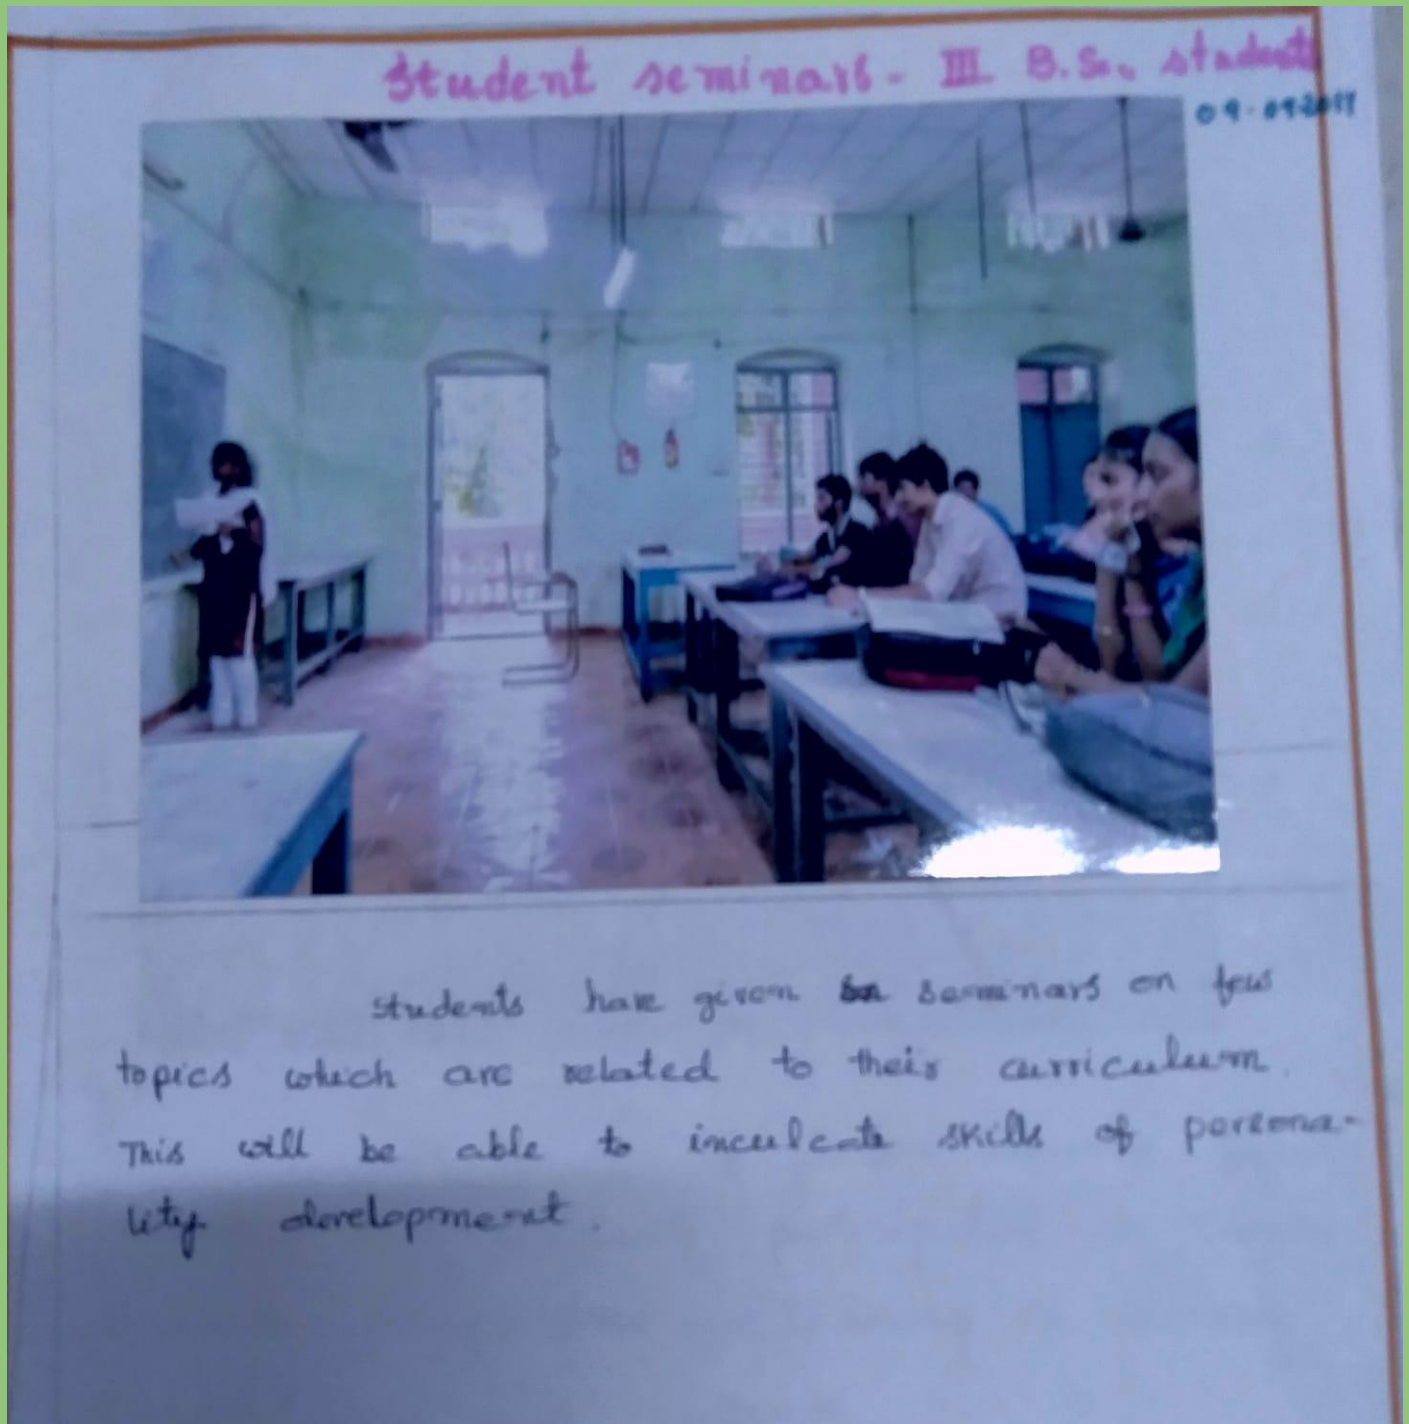 Student seminars - III B.Sc., students
students have given seminars on few
topics which are related to their curriculum.
This will be able to inculcate skills of persona-
lity development.